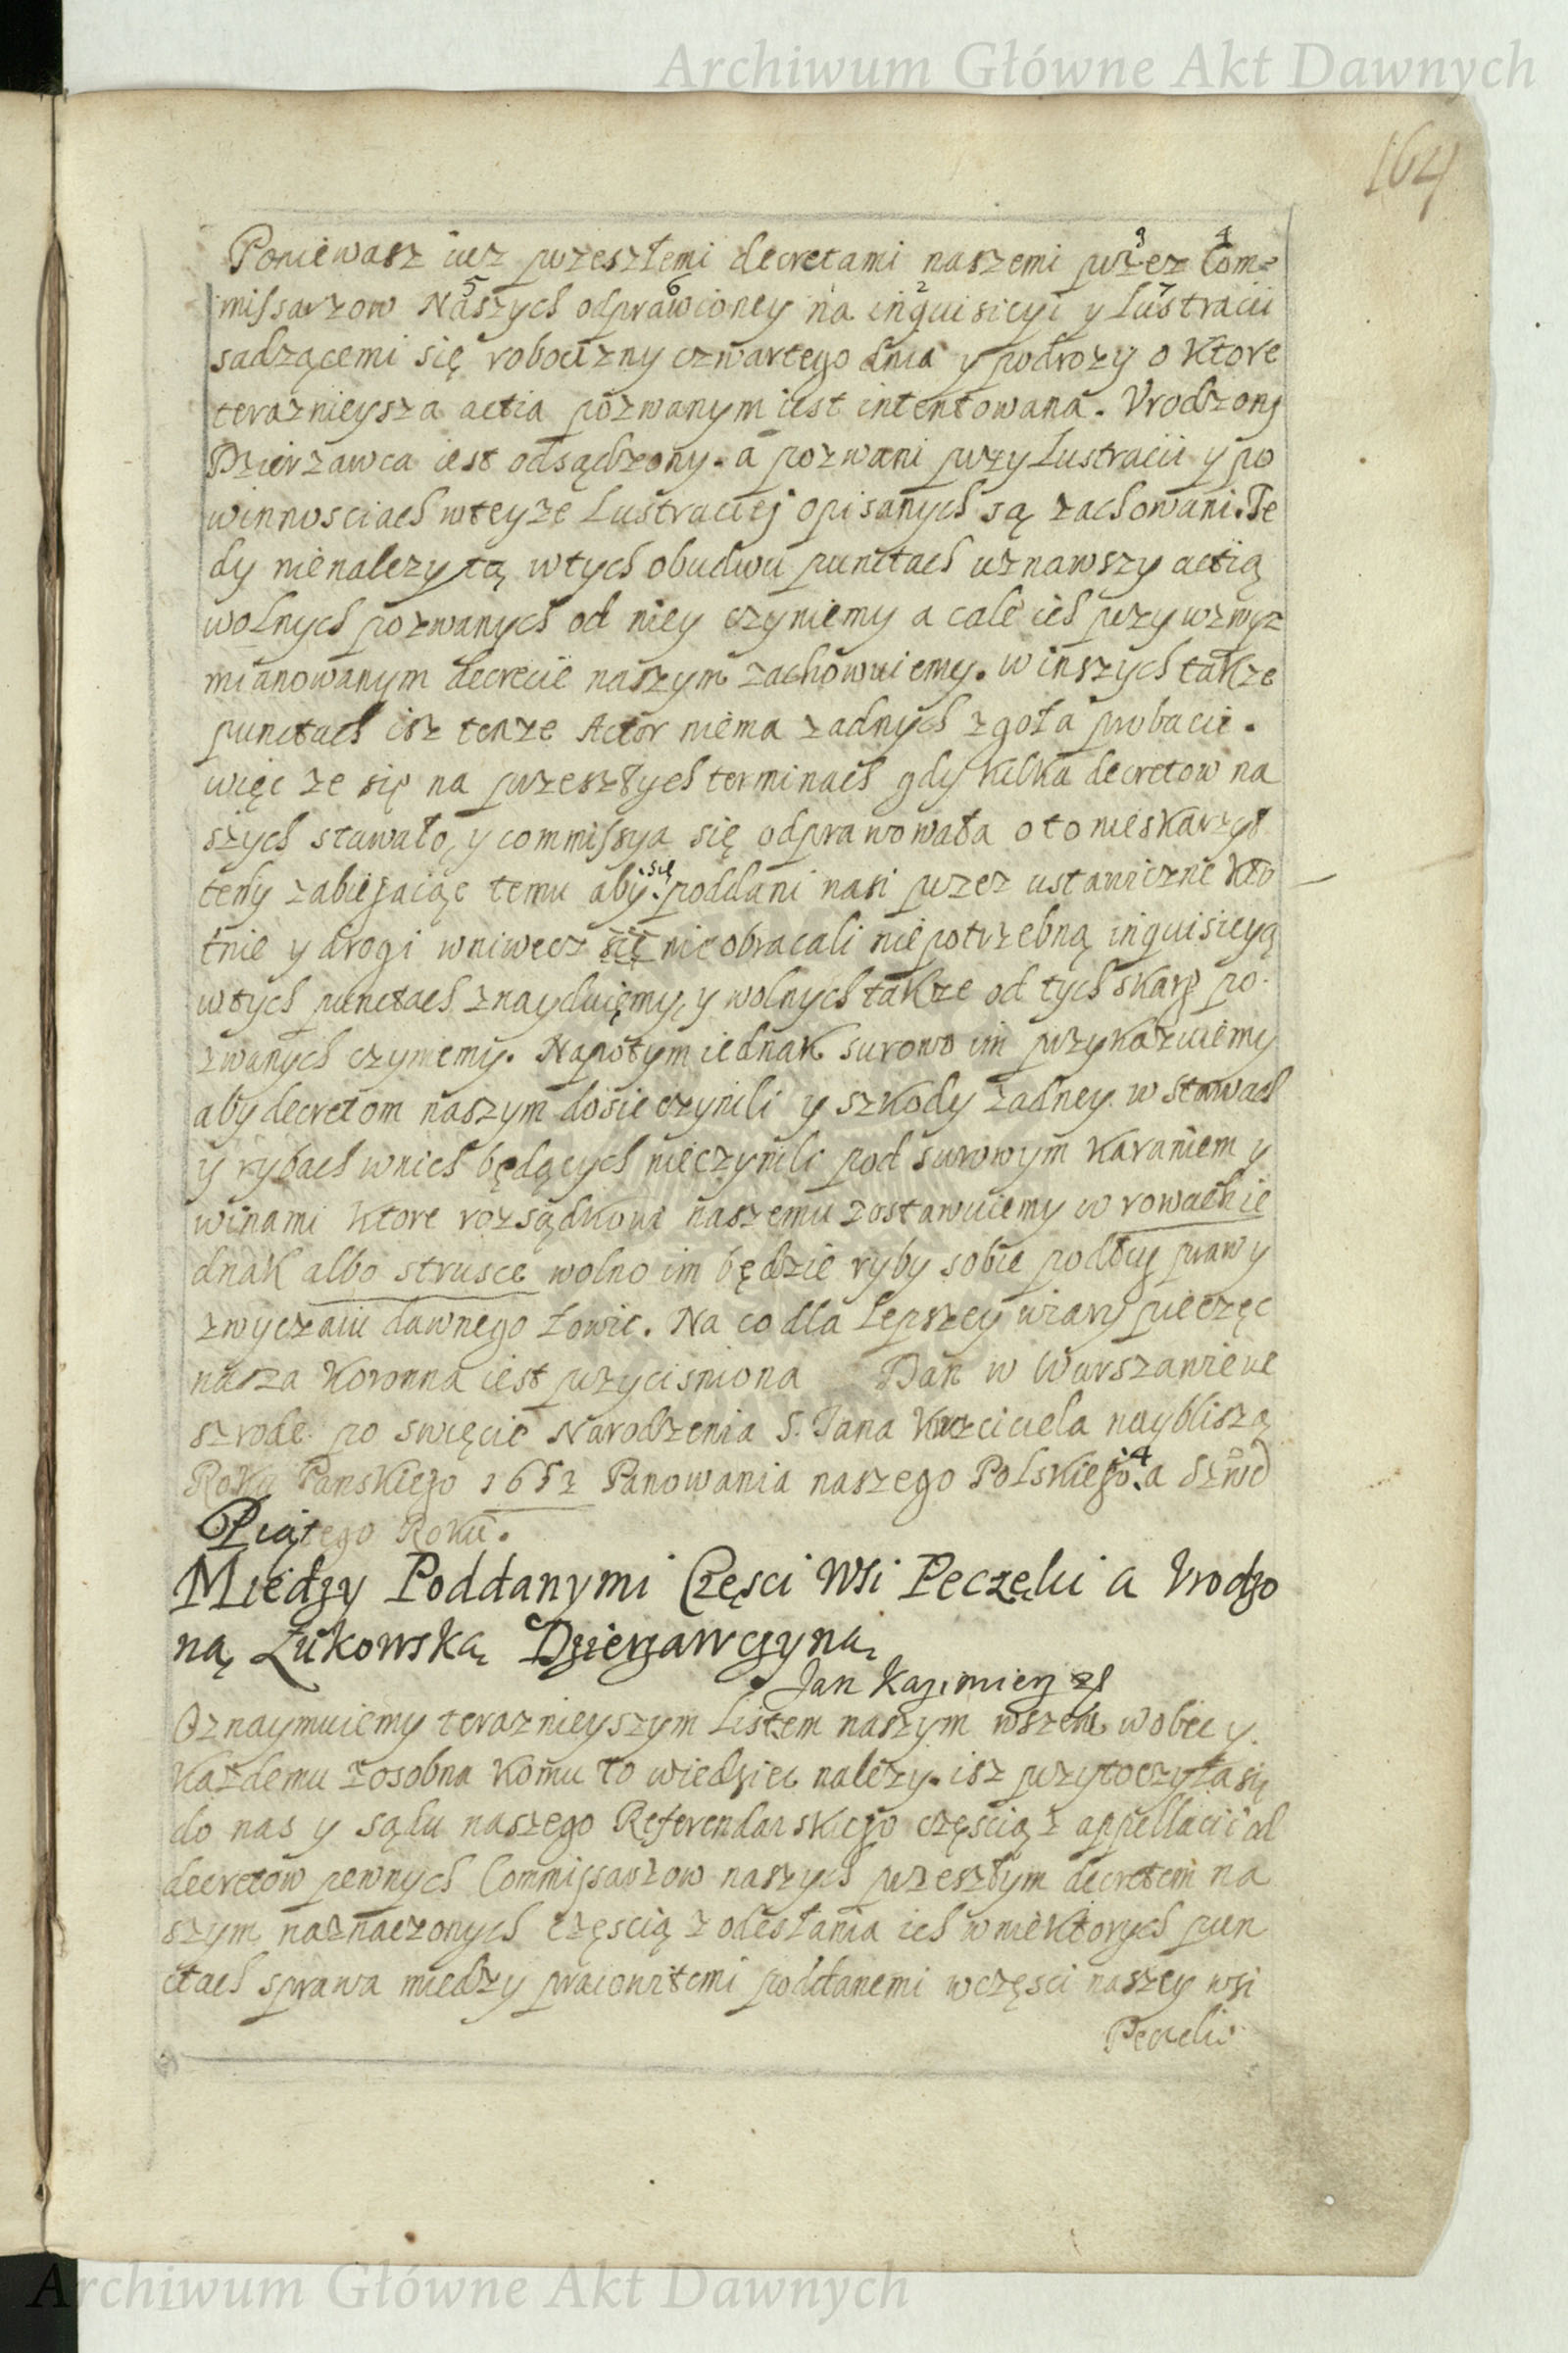 Archiwum Główne Akt Dawnych
164
Poniewasz iuz przeszłemi decretami naszemi przez Com=
missarzow Naszych odprawioney na inquisicyi y Lustracii
sadzącemi się robocizny czwartego dnia y podrozy o Ktore
teraznieysza actia pozwanym iest intentowana. Vrodzony
Dzierzawca iest odsądzony. a pozwani przy Lustracii y po
winnosciach wteyze Lustraciej opisanych są zachowani. Te
dy nienalezytą wtych obudwu punctach uznawszy actią
wolnych pozwanych od niey czyniemy a cale ich przy wzwyz
mianowanym decrecie naszym zachowuiemy. w inszych takze
punctach isz tenze Actor niema zadnych zgoła probacii.
więc ze się na przeszłych terminach gdy kilka decretow na
szych stawało, y commissya się odprawowała o to nieskarzył
tedy zabiegaiąc temu aby się poddani nasi przez ustawiczne kło
tnie y drogi wniwecz nie obracali niepotrzebną inquisicyą
wtych punctach znayduięmy, y wolnych takze od tych skarg po
zwanych czyniemy. Napotym iednak surowo im przykazuiemy
aby decretom naszym dosic czynili y szkody zadney w stawach
y rybach wnich będących nieczynili pod surowym karaniem y
winami Ktore rozsądkowi naszemu zostawuiemy w rowach ie
dnak albo strusce wolno im będzie ryby sobie podług prawy
zwyczaiu dawnego łowic. Na co dla lepszey wiary pieczęc
nasza Koronna iest przycisniona Dan w Warszawie we
szrode po swięcie Narodzenia S. Jana Krzciciela naybliszą
Roku Panskiego 1652 Panowania naszego Polskiego 4. a Szwed
Piątego Roku.
Miedzy Poddanymi Częsci Wsi Peczęlii a Vrodzo
ną Zukowską Dzierzawczyną
Jan Kazimierz
Oznaymuiemy teraznieyszym Listem naszym wszem wobec y
Kazdemu zosobna komu to wiedziec nalezy. isz przytoczyła się
do nas y sądu naszego Referendarskiego częscią z appellacii od
decretow pewnych Commissarzow naszych przeszłym decretem na
szym naznaczonych częscią z odesłania ich w niektorych pun
ctach sprawa miedzy pracowitemi poddanemi wczęsci naszey wsi
Peczelii
Archiwum Główne Akt Dawnych